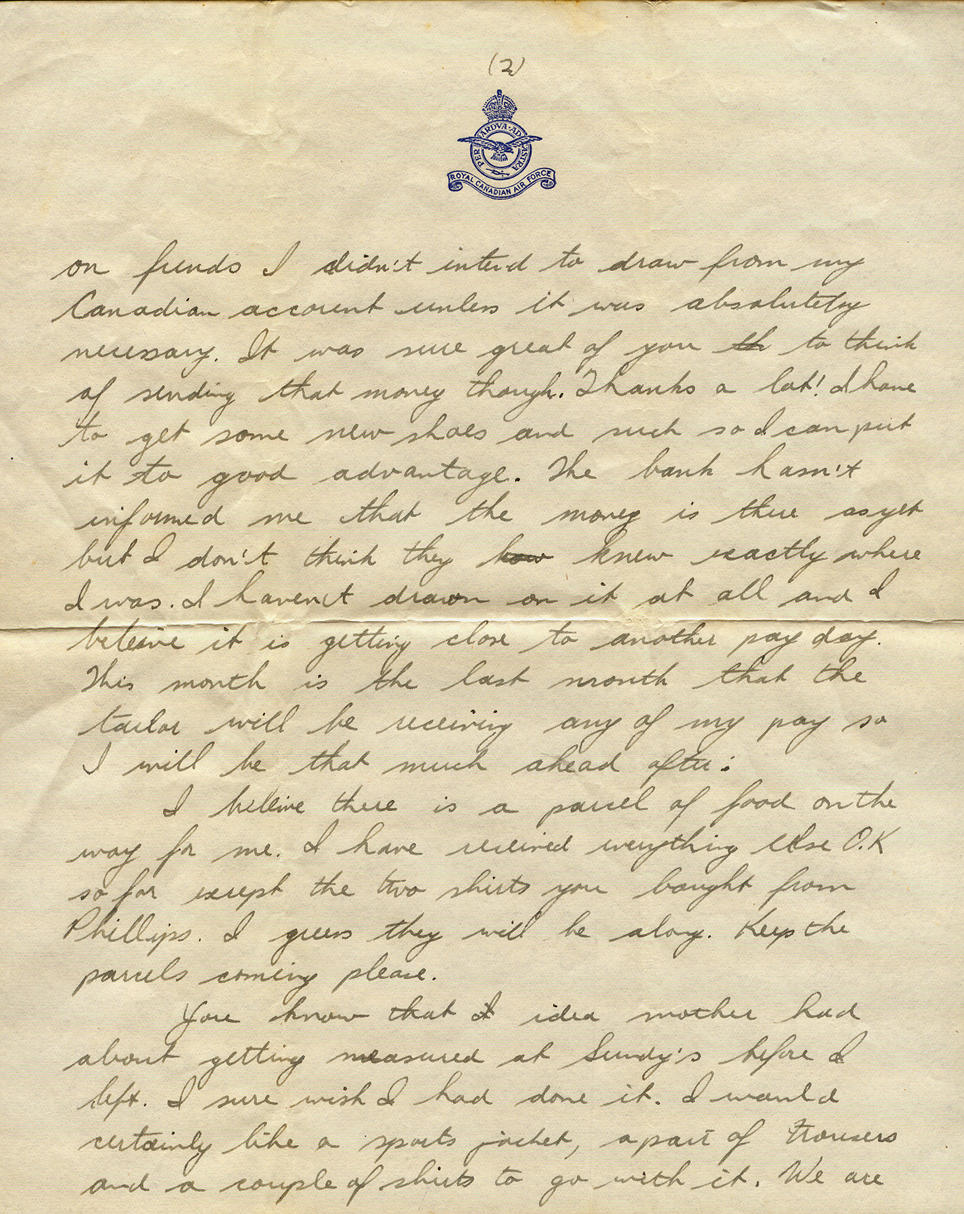 (2)
PER ARDVA AD ASTRA
ROYAL CANADIAN AIR FORCE
on funds I didn't intend to draw from my
Canadian account unless it was absolutely
necessary. It was sure great of you th to think
of sending that money though. Thanks a lot! I have
to get some new shoes and such so I can put
it to good advantage. The bank hasn't
informed me that the money is there as yet
but I don't think they how knew exactly where
I was. I haven't drawn on it at all and I
beleive it is getting close to another pay day.
This month is the last month that the
tailor will be receiving any of my pay so
I will be that much ahead after.
I beleive there is a parcel of food on the
way for me. I have received everything else O.K
so far except the two shirts you bought from
Phillips. I guess they will be along. Keep the
parcels coming please.
You know that I idea mother had
about getting measured at Sundy's before I
left. I sure wish I had done it. I would
certainly like a sports jacket, a pair of trousers
and a couple of shirts to go with it. We are